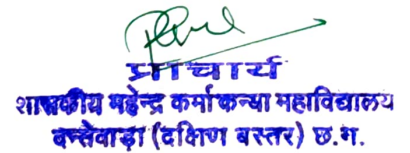 प्राचार्य
शासकीय महेन्द्र कर्मा कन्या महाविद्यालय
दन्तेवाड़ा (दक्षिण बस्तर) छ.ग.